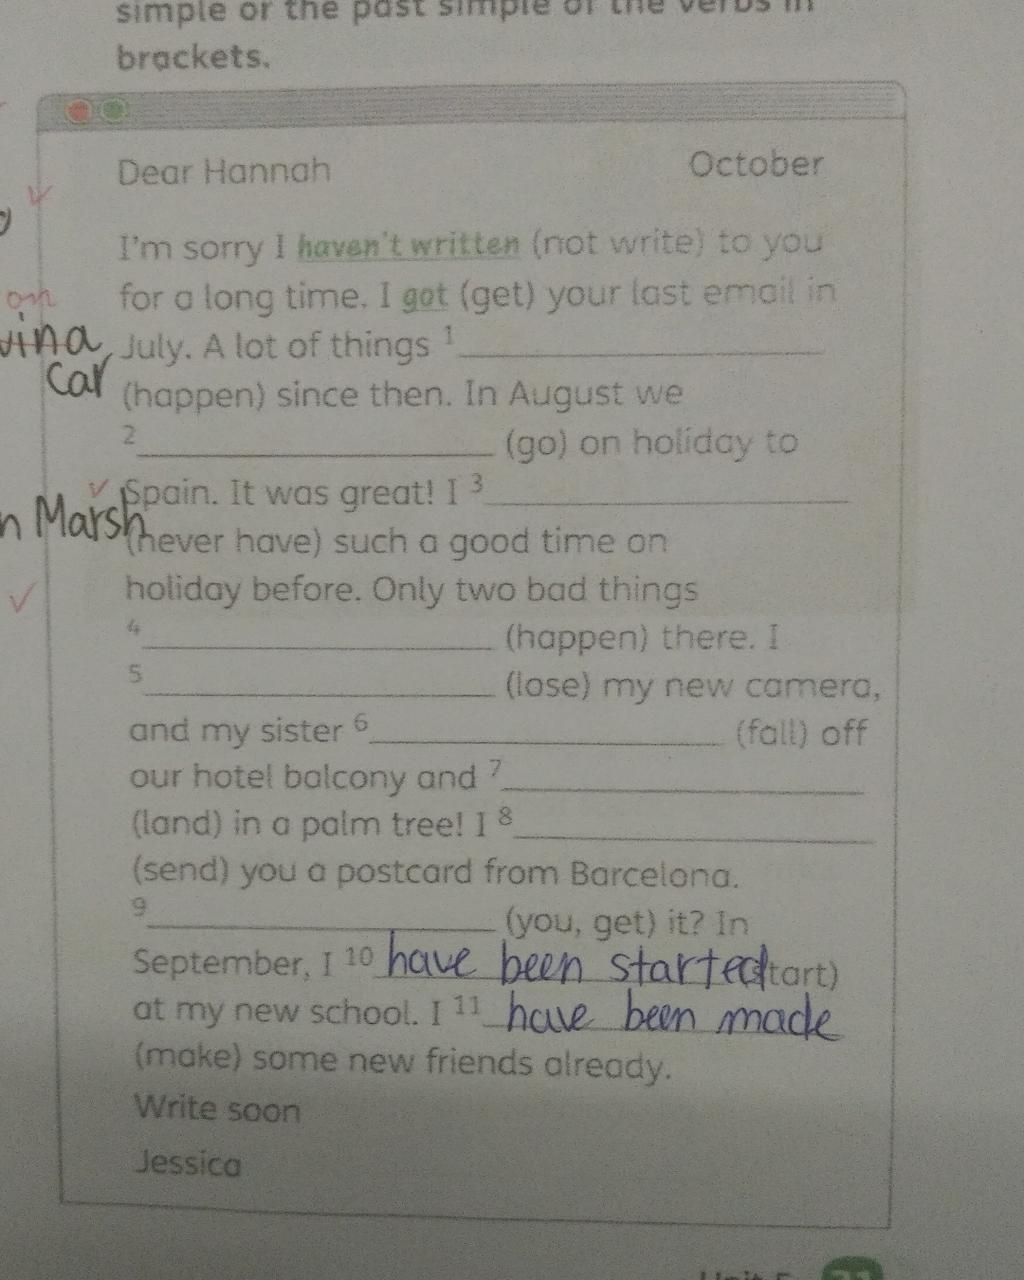 simple or the past simple of the verbs in
brackets.
Dear Hannah October
I'm sorry I haven't written (not write) to you
for a long time. I got (get) your last email in
July. A lot of things 1
(happen) since then. In August we
2 (go) on holiday to
Spain. It was great! I 3
(never have) such a good time on
holiday before. Only two bad things
4 (happen) there. I
5 (lose) my new camera,
and my sister 6 (fall) off
our hotel balcony and 7
(land) in a palm tree! I 8
(send) you a postcard from Barcelona.
9 (you, get) it? In
September, I 10 have been started tart)
at my new school. I 11 have been made
(make) some new friends already.
Write soon
Jessica
car
n Marsh